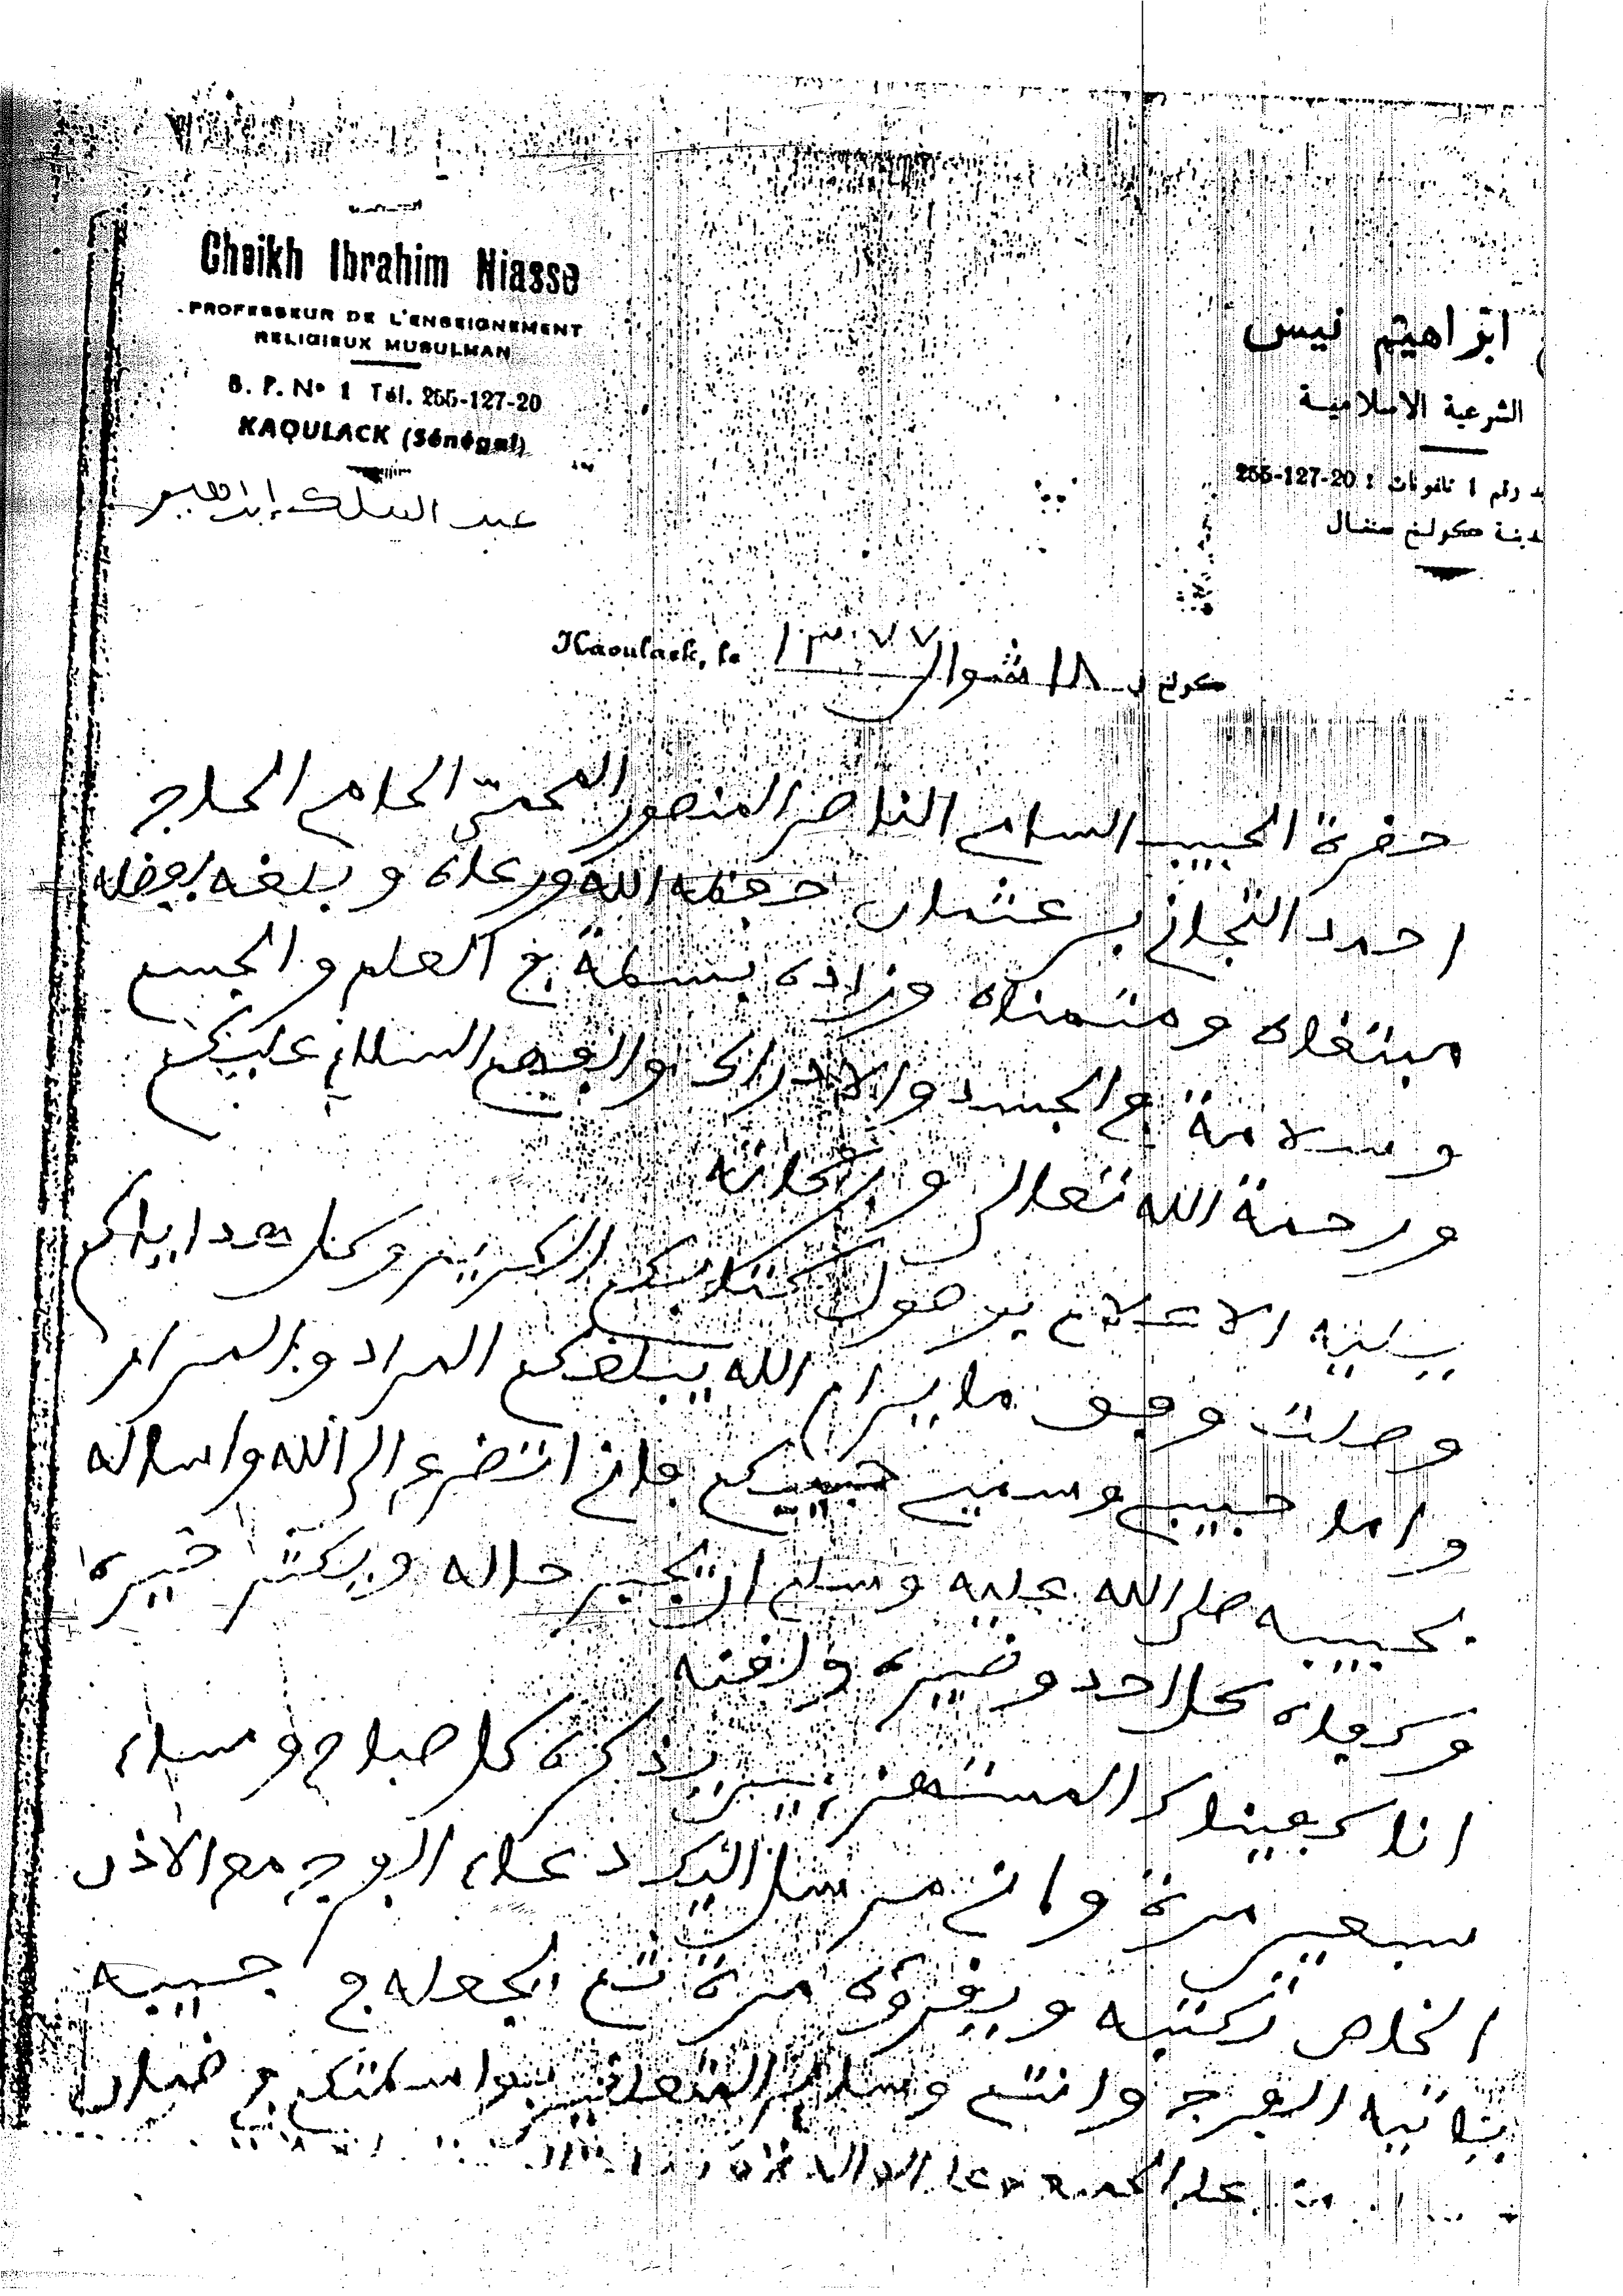 Cheikh Ibrahim Niasse
PROFESSEUR DE L'ENSEIGNEMENT
RELIGIEUX MUSULMAN
B. P. N° 1 Tél. 255-127-20
KAOLACK (Sénégal)
ابراهيم نيس
الشرعية الاسلامية
يد رقم 1 تلفونات : 20-127-255
دينة كولخ سنغال
Kaoulack, le ١٣٧٧
كولخ في ١٨ شوال
حضرة الحبيب السامي الناصر المنصور المحب الحاج
احمد التجاني بن عثمان حفظه الله ورعاه وبلغه بفضله
مبتغاه ومتمناه وزاده بسطة في العلم والجسم
وسلامة في الجسد والادراك والفهم السلام عليكم
ورحمة الله تعالى وبركاته
يليه الاعلام بوصول كتابكم الكريم وكل هداياكم
وصلت وفوق ما يرام الله يبلغكم المراد والمرام
واما حبيب وسميي حبيبكم فاني اتضرع الى الله واساله
بحبيبه صلى الله عليه وسلم ان يجبر حاله ويكثر خيره
وكفاه كل احد وضيره واذنه
انا كفيناك المستهزئين يذكره كل صباح ومساء
سبعين مرة واني مرسل اليك دعاء الفرج مع الاذن
الخاص تكتبه ويقرؤه مرة ثم يجعله في جيبه
ياتيه الفرج وانتم وسائر المتعلقين بواسطتكم في ضمان